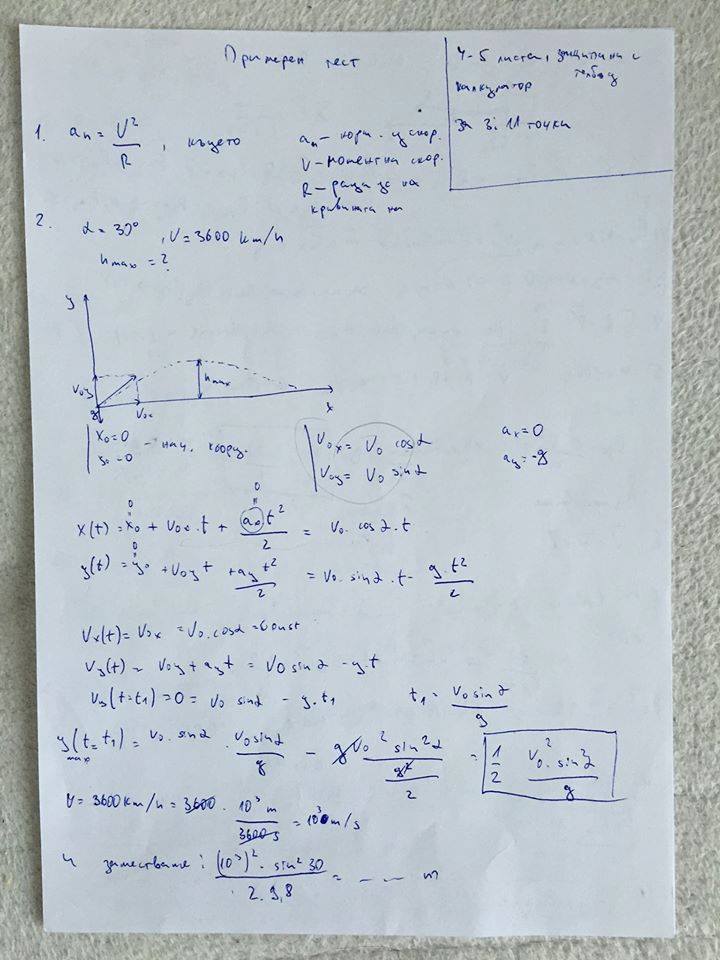 Примерен тест
4-5 листа, защипани с
телбод
калкулатор
За 3: 11 точки
1. aₙ = V²/R , където
aₙ – норм. ускор.
V – моментна скор.
R – радиус на
кривината на
2. α = 30° , V = 3600 km/h
hmax = ?
y
V₀y
g
V₀x
hmax
x
x₀ = 0
y₀ = 0
– нач. коорд.
V₀x = V₀ cosα
V₀y = V₀ sinα
ax = 0
ay = -g
0 0
x(t) = x₀ + V₀x . t + ax t²/2 = V₀ . cosα . t
0
y(t) = y₀ + V₀y t + ay t²/2 = V₀ . sinα . t - g.t²/2
Vx(t) = V₀x = V₀ . cosα = const
Vy(t) = V₀y + ay t = V₀ sinα - g.t
Vy(t=t₁) = 0 = V₀ sinα - g.t₁ t₁ = V₀ sinα/g
ymax(t=t₁) = V₀ . sinα . V₀ sinα/g - g V₀² sin²α/g²/2 = 1/2 V₀² . sin²α/g
V = 3600 km/h = 3600 . 10³ m/3600 s = 10³ m/s
заместване : (10³)² . sin² 30/2 . 9,8 = – – – m